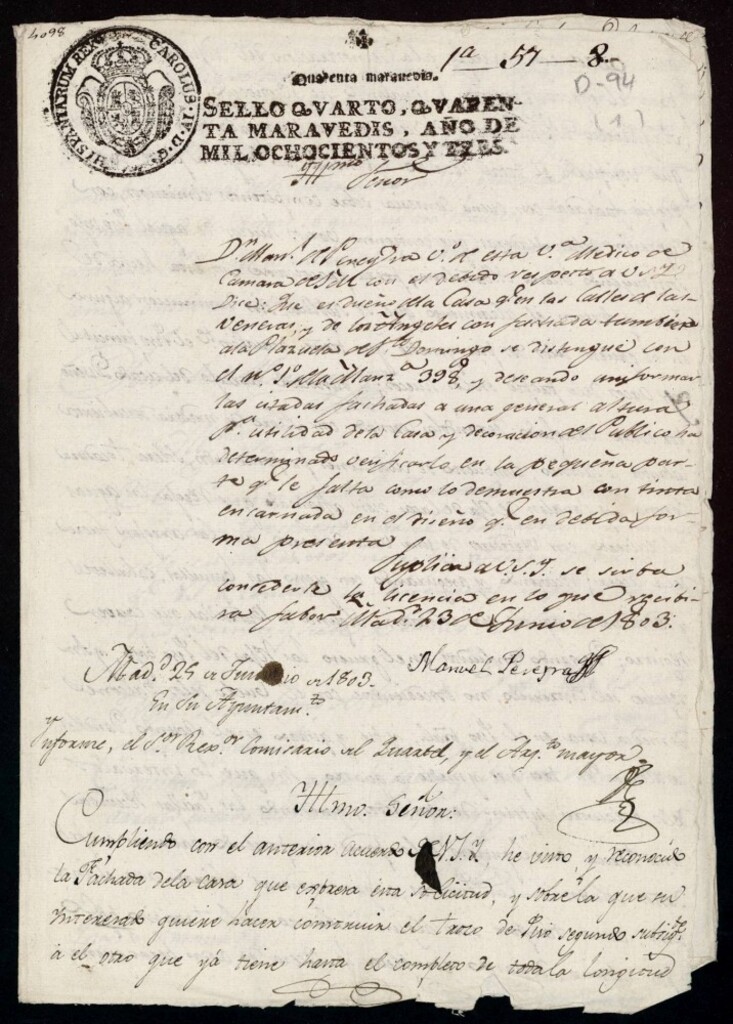 4098
HISPANIARUM REX CAROLUS IV D.G.
1a 57 8
D-94
(1)
Quarenta maravedis.
SELLO QVARTO, QVAREN-
TA MARAVEDIS, AÑO DE
MIL OCHOCIENTOS Y TRES.
Yllmo Señor
Dn. Manl. de Pereyra Vº de esta Vª Medico de
Camara de S.M. con el debido respecto a V.S.I.
Dice: Que es dueño dela Casa qe. en las Calles de las
Veneras, y de los Angeles con fachada tambien
ala Plazuela de Sto. Domingo se distingue con
el nº 1º dela Manzª 398, y deseando uniformar
las citadas fachadas a una general altura
pª utilidad dela Casa y decoracion del Publico ha
determinado verificarlo en la pequeña par-
te qe. le falta como lo demuestra con tinta
encarnada en el diseño qe. en debida for-
ma presenta
Suplica a V.S.I. se sirba
concederle la licencia en lo que recibi-
ra fabor Madd. 23 de Junio de 1803.
Manuel Pereyra
Madd. 25 de Junio de 1803.
En su Ayuntamto.
Ynforme, el Sor. Rexor. Comisario del Quartel, y el Arqto. mayor
Yllmo. Señor:
Cumpliendo con el anterior acuerdo de V.S.I. he visto y reconocido
la Fachada dela casa que expresa esta solicitud, y sobre la que su
Interesado quiere hacer construir el trozo de Piso segundo
a el otro que yá tiene hasta el completo de toda la longitud